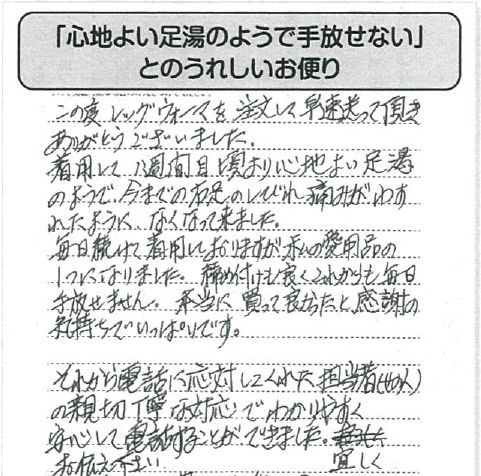 「心地よい足湯のようで手放せない」
とのうれしいお便り
この度レッグウォーマを注文して早速送って頂き
ありがとうございました。
着用して1週間目頃より心地よい足湯
のようで、今までの右足のしびれ、痛みがわすれ
れたように、なくなって来ました。
毎日続けて着用しておりますが私の愛用品の
1つになりました。締め付けも良くこれからも毎日
手放せません。本当に買って良かったと感謝の
気持ちでいっぱいです。
それから電話に応対してくれた担当者(女の人)
の親切丁寧な対応でわかりやすく
安心して電話することができました。
お伝え下さい 宜しく